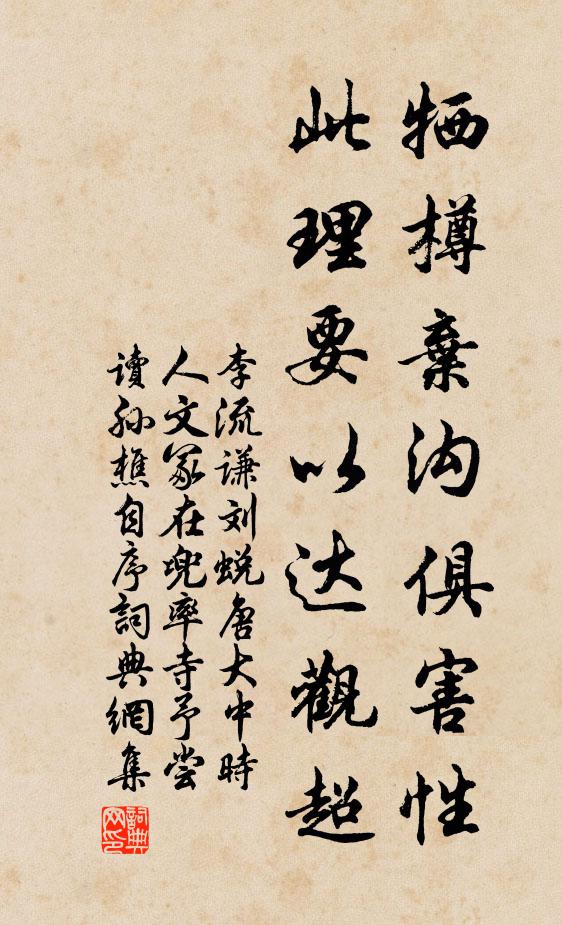 牺樽棄沟俱害性
此理要以达觀超
李流谦刘蜕唐大中時
人文冢在兜率寺予尝
讀孙樵自序詞典網集
詞典网印